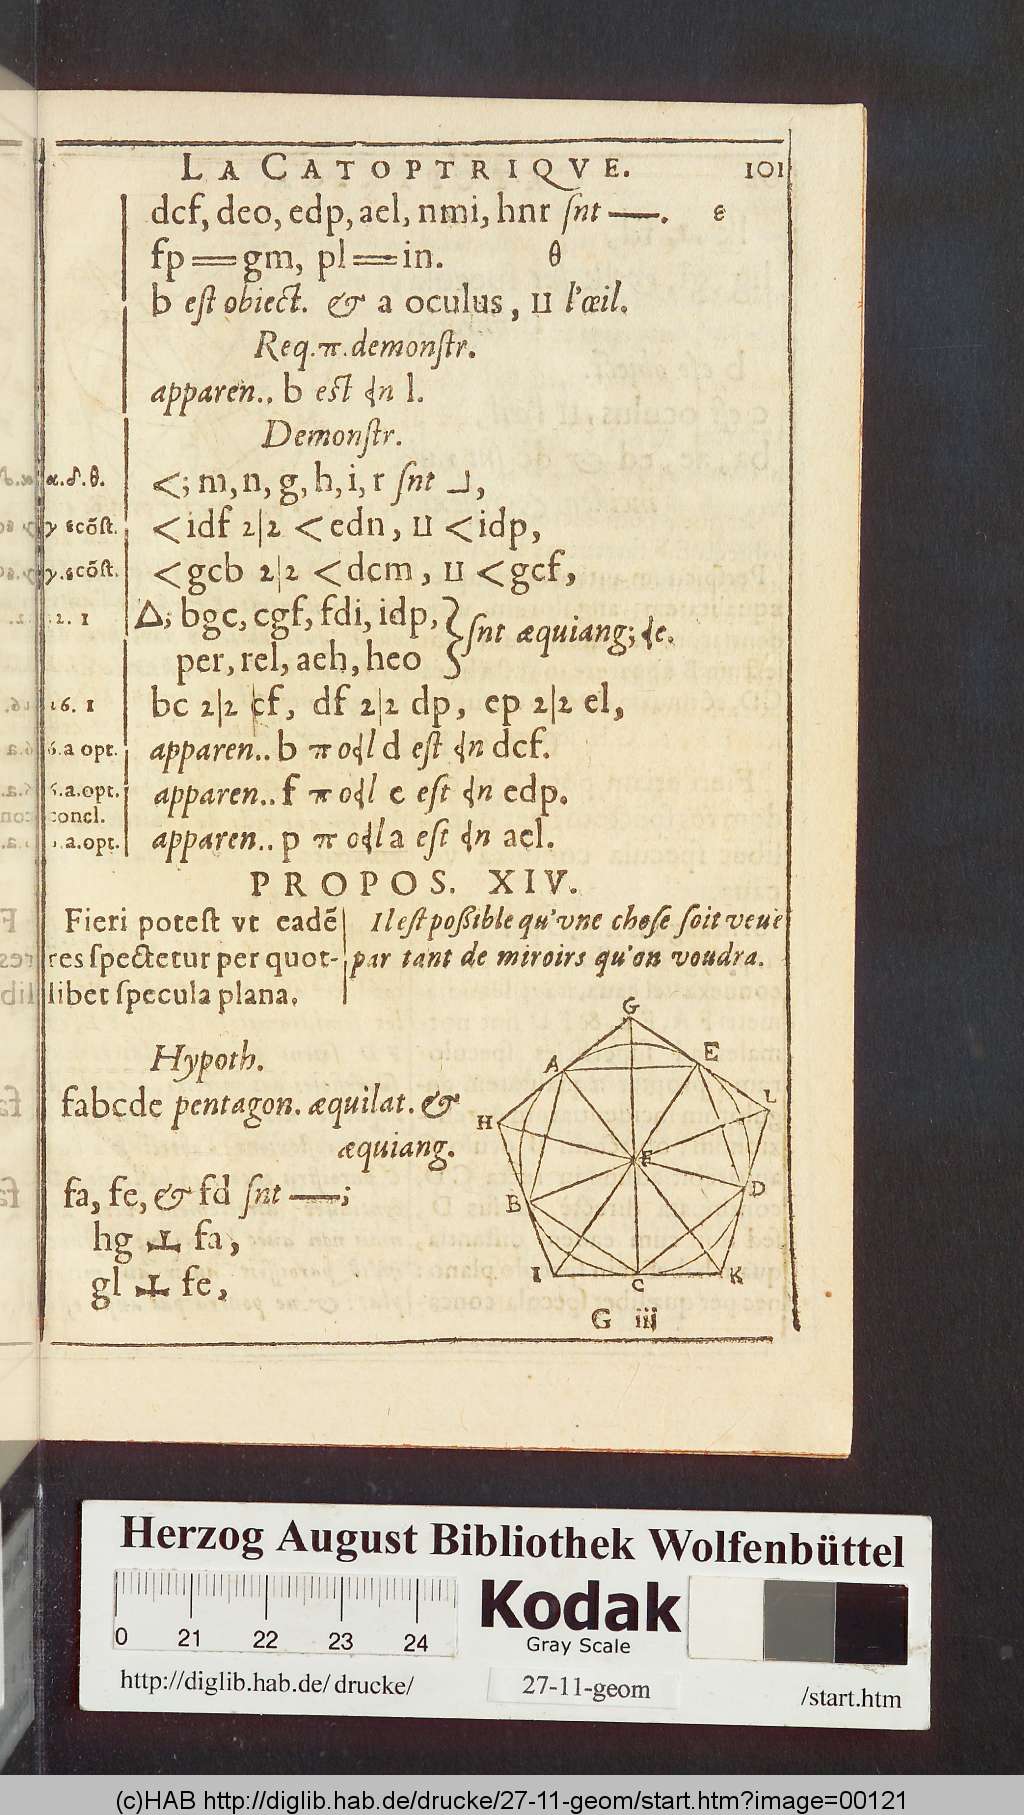 LA CATOPTRIQVE. 101
dcf, deo, edp, ael, nmi, hnr ſnt —. ε
fp = gm, pl = in. θ
b eſt obiect. & a oculus, Π l'œil.
Req.π.demonſtr.
apparen.. b eſt ɖn l.
Demonſtr.
α.δ.θ. <; m, n, g, h, i, r ſnt ⅃,
γ εcõſt. <idf 2|2 <edn, Π <idp,
γ.εcõſt. <gcb 2|2 <dcm, Π <gcf,
.2. 1 Δ; bgc, cgf, fdi, idp,
per, rel, aeh, heo } ſnt æquiang; ɖe.
26. 1 bc 2|2 cf, df 2|2 dp, ep 2|2 el,
6.a opt. apparen.. b π oɖl d eſt ɖn dcf.
6.a.opt. apparen.. f π oɖl e eſt ɖn edp.
concl.
.a.opt. apparen.. p π oɖl a eſt ɖn ael.
PROPOS. XIV.
Fieri poteſt vt eadē
res ſpectetur per quot-
libet ſpecula plana.
Il eſt poßible qu'vne choſe ſoit veuë
par tant de miroirs qu'on voudra.
Hypoth.
fabcde pentagon. æquilat. &
æquiang.
fa, fe, & fd ſnt —;
hg ⊥ fa,
gl ⊥ fe,
G
A E
H L
F
B D
I C K
G iij
Herzog August Bibliothek Wolfenbüttel
0 21 22 23 24
Kodak
Gray Scale
http://diglib.hab.de/drucke/ 27-11-geom /start.htm
(c)HAB http://diglib.hab.de/drucke/27-11-geom/start.htm?image=00121